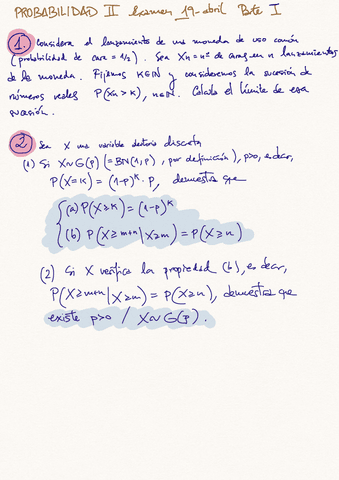 PROBABILIDAD II Examen 19-abril Parte I
1. Considera el lanzamiento de una moneda de uso común
(probabilidad de cara = 1/2). Sea Xn = nº de caras en n lanzamientos
de la moneda. Fijamos K∈ℕ y consideremos la sucesión de
números reales P(Xn > K), n∈ℕ. Calcula el límite de esa
sucesión.
2 Sea X una variable aleatoria discreta
(1) Si X∼G(p) (=BN(1,p), por definición), p>0, es decir,
P(X=K) = (1-p)^K · p, demuestra que
(a) P(X≥K) = (1-p)^K
(b) P(X≥m+n | X≥m) = P(X≥n)
(2) Si X verifica la propiedad (b), es decir,
P(X≥m+n | X≥m) = P(X≥n), demuestra que
existe p>0 / X∼G(p).